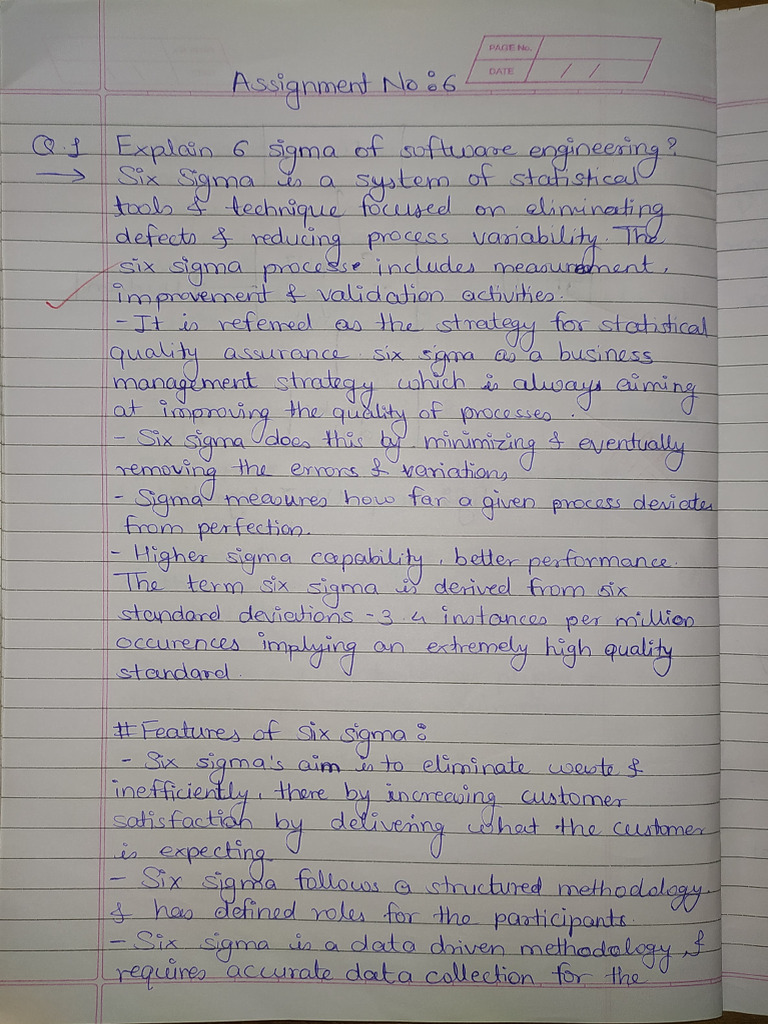 PAGE No.
DATE / /
Assignment No : 6
Q.1 Explain 6 sigma of software engineering?
→ Six Sigma is a system of statistical
tools & technique focused on eliminating
defects & reducing process variability. The
six sigma process includes measurement,
improvement & validation activities.
- It is referred as the strategy for statistical
quality assurance six sigma as a business
management strategy which is always aiming
at improving the quality of processes.
- Six sigma does this by minimizing & eventually
removing the errors & variations
- Sigma measures how far a given process deviates
from perfection.
- Higher sigma capability, better performance.
The term six sigma is derived from six
standard deviations - 3.4 instances per million
occurences implying an extremely high quality
standard.
# Features of six sigma :
- Six sigma's aim is to eliminate waste &
inefficiently, there by increasing customer
satisfaction by delivering what the customer
is expecting
- Six sigma follows a structured methodology
& has defined roles for the participants.
- Six sigma is a data driven methodology, &
requires accurate data collection for the